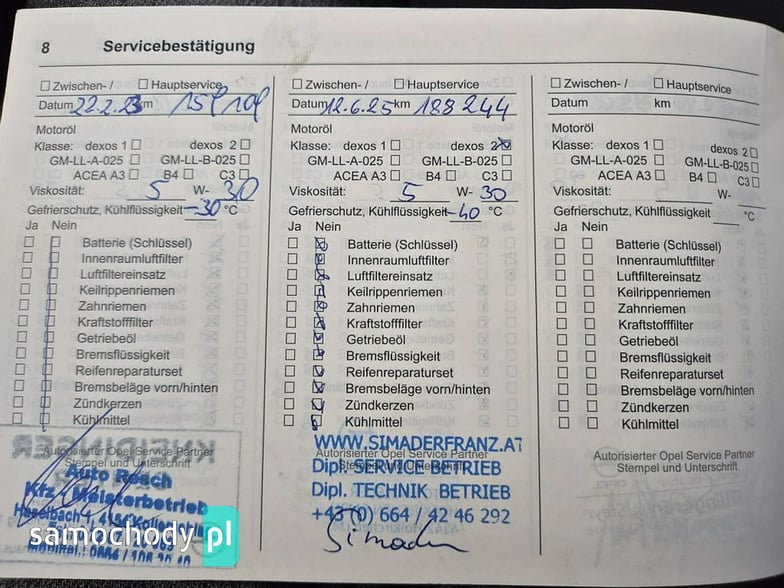 8 Servicebestätigung
☐ Zwischen- / ☐ Hauptservice
Datum 22.2.23 km
Motoröl
Klasse: dexos 1 ☐ dexos 2 ☐
GM-LL-A-025 ☐ GM-LL-B-025 ☐
ACEA A3 ☐ B4 ☐ C3 ☐
Viskosität: 5 W- 30
Gefrierschutz, Kühlflüssigkeit -30 °C
Ja Nein
Batterie (Schlüssel)
Innenraumluftfilter
Luftfiltereinsatz
Keilrippenriemen
Zahnriemen
Kraftstofffilter
Getriebeöl
Bremsflüssigkeit
Reifenreparaturset
Bremsbeläge vorn/hinten
Zündkerzen
Kühlmittel
Autorisierter Opel Service Partner
Stempel und Unterschrift
Auto Resch
Kfz - Meisterbetrieb
☐ Zwischen- / ☐ Hauptservice
Datum 12.6.25 km 188 244
Motoröl
Klasse: dexos 1 ☐ dexos 2 ☒
GM-LL-A-025 ☐ GM-LL-B-025 ☐
ACEA A3 ☐ B4 ☐ C3 ☐
Viskosität: 5 W- 30
Gefrierschutz, Kühlflüssigkeit -40 °C
Ja Nein
Batterie (Schlüssel)
Innenraumluftfilter
Luftfiltereinsatz
Keilrippenriemen
Zahnriemen
Kraftstofffilter
Getriebeöl
Bremsflüssigkeit
Reifenreparaturset
Bremsbeläge vorn/hinten
Zündkerzen
Kühlmittel
WWW.SIMADERFRANZ.AT
Autorisierter Opel Service Partner
Dipl. SERVICE BETRIEB
Dipl. TECHNIK BETRIEB
+43 (0) 664 / 42 46 292
Simader
☐ Zwischen- / ☐ Hauptservice
Datum km
Motoröl
Klasse: dexos 1 ☐ dexos 2 ☐
GM-LL-A-025 ☐ GM-LL-B-025 ☐
ACEA A3 ☐ B4 ☐ C3 ☐
Viskosität: W-
Gefrierschutz, Kühlflüssigkeit °C
Ja Nein
Batterie (Schlüssel)
Innenraumluftfilter
Luftfiltereinsatz
Keilrippenriemen
Zahnriemen
Kraftstofffilter
Getriebeöl
Bremsflüssigkeit
Reifenreparaturset
Bremsbeläge vorn/hinten
Zündkerzen
Kühlmittel
Autorisierter Opel Service Partner
Stempel und Unterschrift
samochody.pl